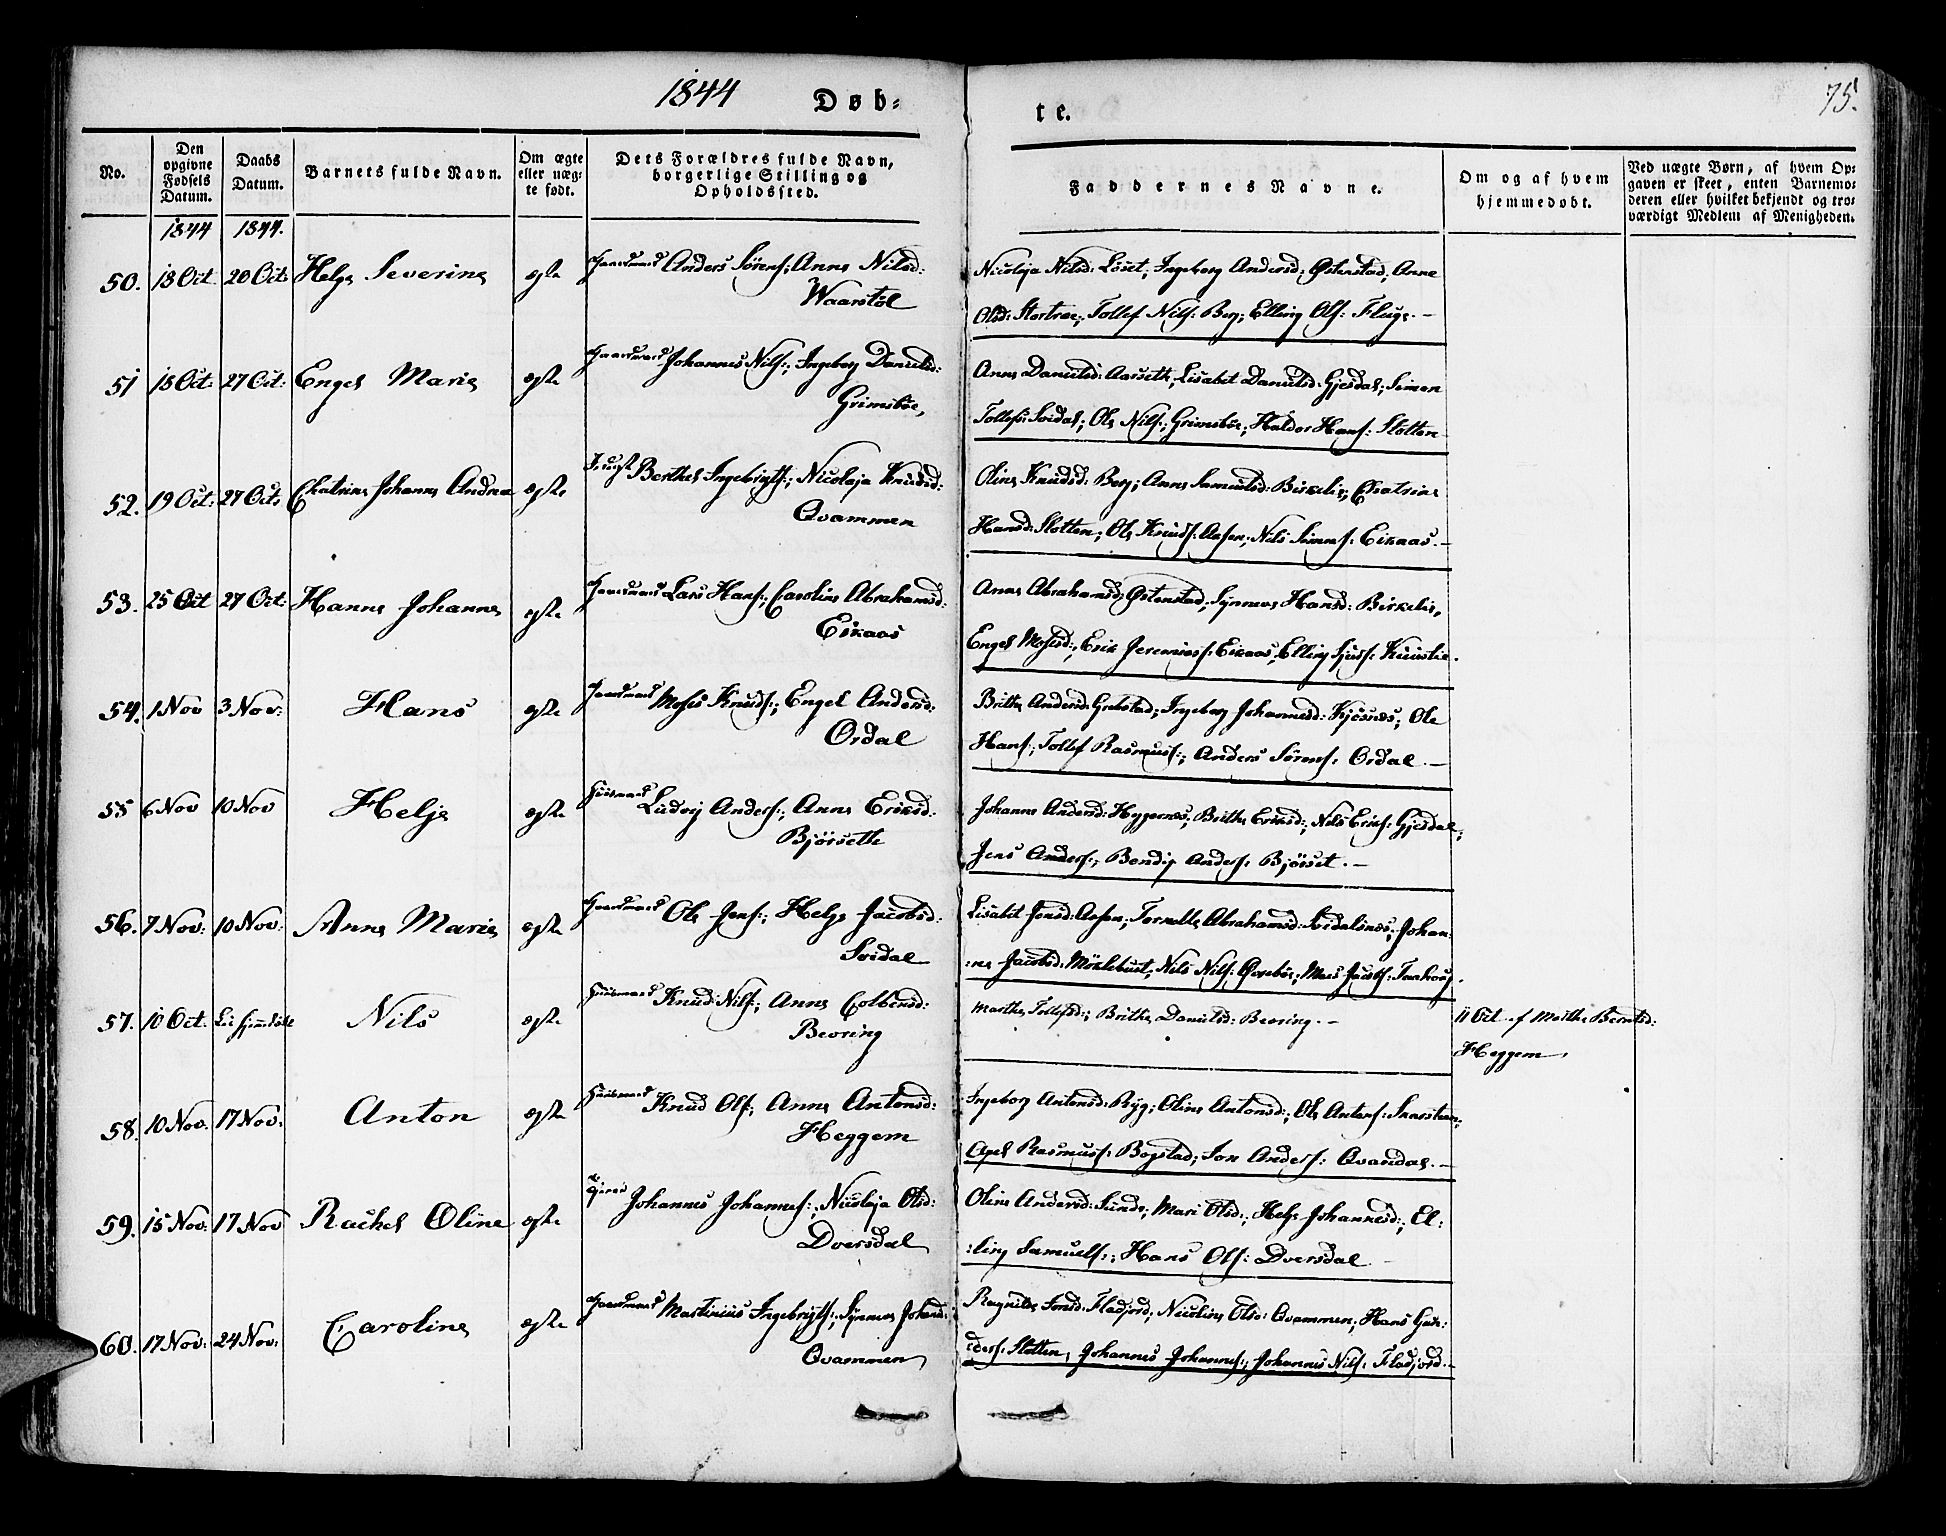 1844 Døb-
te. 75.
No. Den opgivne Fødsels Datum. Daabs Datum. Barnets fulde Navn. Om ægte eller uægte født. Dets Forældres fulde Navn, borgerlige Stilling og Opholdssted.
Faddernes Navne. Om og af hvem hjemmedøbt. Ved uægte Børn, af hvem Opgaven er skeet, enten Barnemoderen eller hvilket bekjendt og troværdigt Medlem af Menigheden.
1844 1844.
50. 18 Oct. 20 Oct: Helge Severine egte Gaardmand Anders Sørens:, Anne Nilsd:
Waarstøl
Nicolaja Nilsd: Löset, Ingeborg Andersd: Østenstad, Anne
Olsd: Stortræe, Tollef Nils: Berg; Elling Ols: Fluge.-
51 18 Oct: 27 Oct: Engel Marie egte Gaardmand Johannes Nils:, Ingeborg Danielsd:
Grimsböe,
Anne Danielsd: Aasseth, Lisabet Danielsd: Gjesdal; Simon
Tollefs: Svidal; Ole Nils:, Grimsböe; Haldor Hans: Slotten
52. 19 Oct: 27 Oct: Chatrine Johanne Andrea egte Berthel Ingebrigts:, Nicolaja Knudsd:
Qvammen
Oline Knudsd: Berg; Anne Samuelsd: Birkelie, Chatrine
Hansd: Slotten; Ole Knuds: Aasen, Nils Simons: Eikaas.-
53. 25 Oct 27 Oct: Hanne Johanne egte Gaardmand Lars Hans:, Caroline Abrahamsd:
Eikaas
Anne Abrahamsd: Østenstad, Synneve Hansd: Birkelie,
Engel Mosesd:, Erik Jeremias: Eikaas, Elling
54. 1 Nov 3 Nov: Hans egte Gaardmand Moses Knuds:, Engel Andersd:
Ordal
Brithe Andersd: Grebstad; Ingeborg Johannesd: Kjösnæs, Ole
Hans:, Tollef Rasmus:, Anders Sörens: Ordal.-
55 6 Nov 10 Nov Helje egte Huusmand Ludvig Anders:, Anne Eriksd:
Bjørseth
Johanne Andersd: Heggernæs, Brithe Eriksd:, Nils Eriks: Gjesdal,
Jens Anders:, Bendix Anders: Bjørset.-
56. 7 Nov: 10 Nov: Anne Marie egte Gaardmand Ole Jens:, Helge Jacobsd:
Svidal
Lisabet Jensd: Aasen, Abrahamsd: Svidalsnæs, Johan-
-ne Jacobsd: Möklebust, Nils Nils: Mons Jacobs:
57. 10 Oct. Nils egte Huusmand Knud Nils:, Anne Colbensd:
Bevring
Marthe Tollefsd:, Brithe Danielsd: Bevring.-
11 Oct. af Marthe Berntsd:
Heggem,
58. 10 Nov. 17 Nov: Anton egte Huusmand Knud Ols:, Anne Antonsd:
Heggem
Ingeborg Antonsd: Ryg; Oline Antonsd:, Ole Antons:
Axel Rasmus: Bogstad, Jon Anders: Qvandal.-
59. 15 Nov: 17 Nov Rachel Oline egte Johannes Johannes:, Nicolaja Olsd:
Dvergsdal
Oline Andersd: Sunde, Mari Olsd:, Helge Johannesd:, El-
-ling Samuels:, Hans Ols: Dvergsdal
60. 17 Nov: 24 Nov: Caroline egte Gaardmand Martinius Ingebrigts:, Synneve Johansd:
Qvammen
Ragnilde Jonsd: Fladjord, Nicoline Olsd: Qvammen, Hans Gun-
-ders: Slotten, Johannes Johannes:, Johannes Nils: Fladjord.-